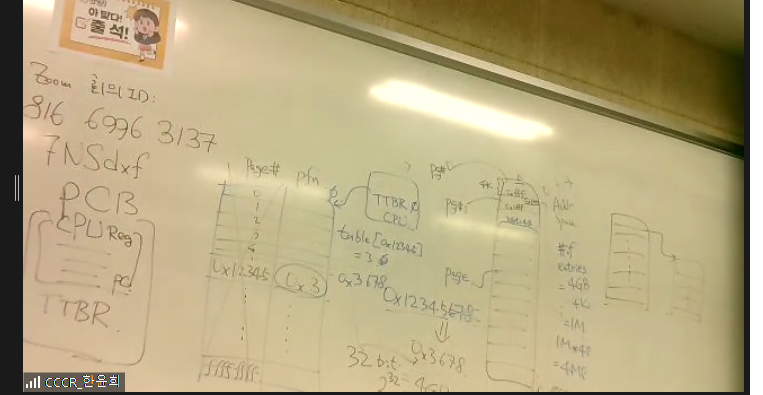 아 맞다!
출석!
Zoom 회의 ID:
816 6996 3137
7NSdxf
PCB
CPU Reg
PC
TTBR
Page# pfn
0
1
2
3
4
0x12345 0x3
TTBR
CPU
table[0x12345]
= 3
0x3678
0x12345678
⇓
0x3678
32 bit
2³² = 4GB
4K
page
Addr
Space
# of
entries
= 4GB
4K
= 1M
1M * 4B
= 4MB
CCCR_한윤희